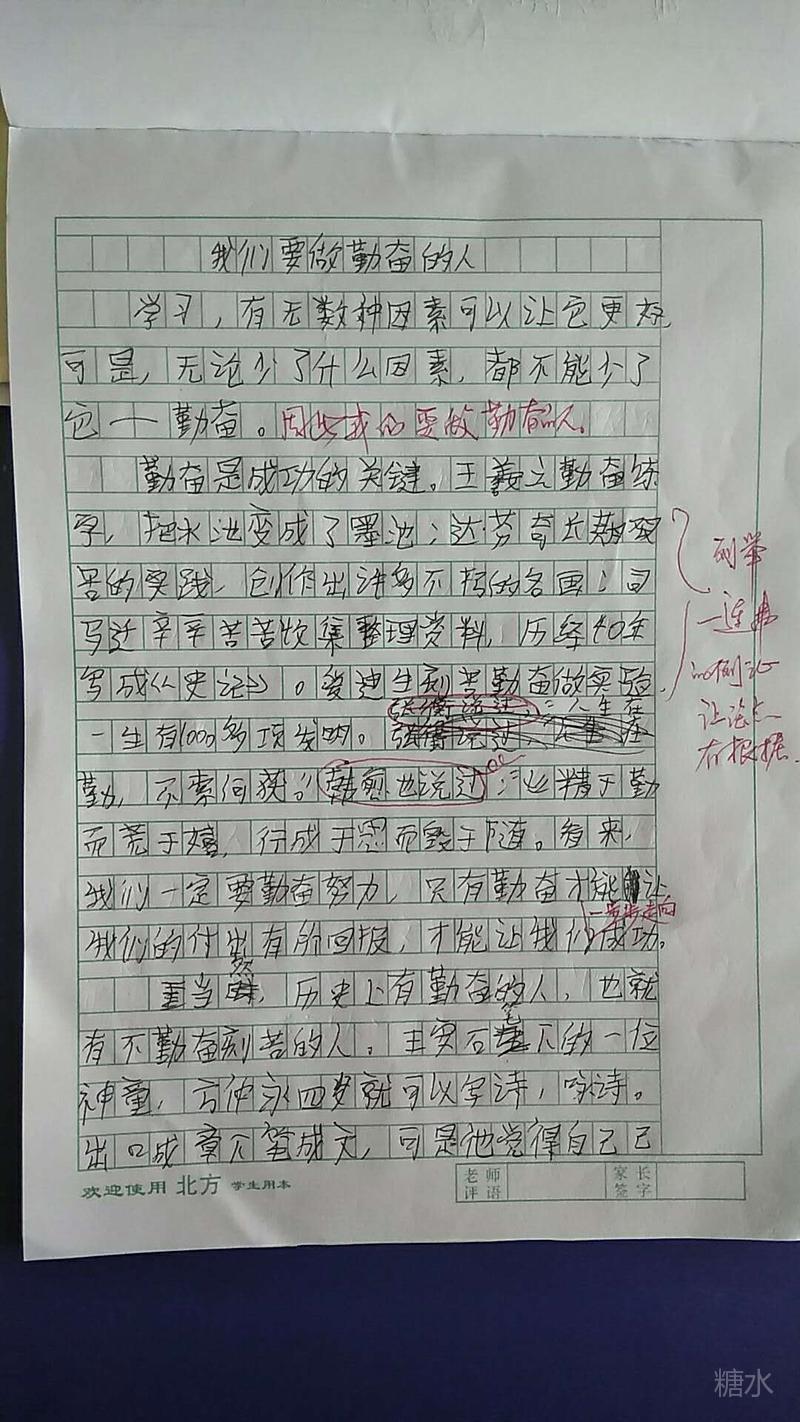 我们要做勤奋的人
学习，有无数种因素可以让它更好，
可是，无论少了什么因素，都不能少了
它——勤奋。因此我们要做勤奋的人。
勤奋是成功的关键。王羲之勤奋练
字，把水池变成了墨池；达·芬奇长期艰
苦的实践，创作出许多不朽的名画；司
马迁辛辛苦苦收集整理资料，历经40年
写成《史记》。爱迪生刻苦勤奋做实验，
列举
一连串
的例证
让论点
有根据
张衡说过：“人生在
一生有1000多项发明。
勤，不索何获”。韩愈也说过：“业精于勤
而荒于嬉，行成于思而毁于随。看来，
我们一定要勤奋努力，只有勤奋才能让
一步步走向
我们的付出有所回报，才能让我们成功。
当然，历史上有勤奋的人，也就
有不勤奋刻苦的人。王安石笔下的一位
神童，方仲永四岁就可以写诗，咏诗。
出口成章下笔成文，可是他觉得自己已
欢迎使用 北方 学生用本
老师评语
家长签字
糖水